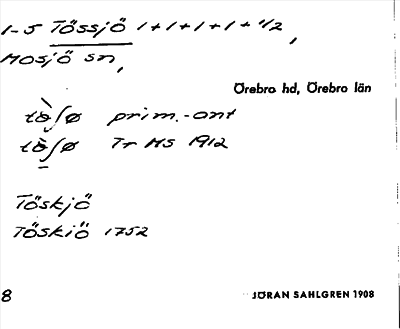 1-5 Tössjö 1+1+1+1+1/2,
Mosjö sn,
Örebro hd, Örebro län
prim.-ont
Tr MS 1912
Töskjö
Töskiö 1752
8 JÖRAN SAHLGREN 1908